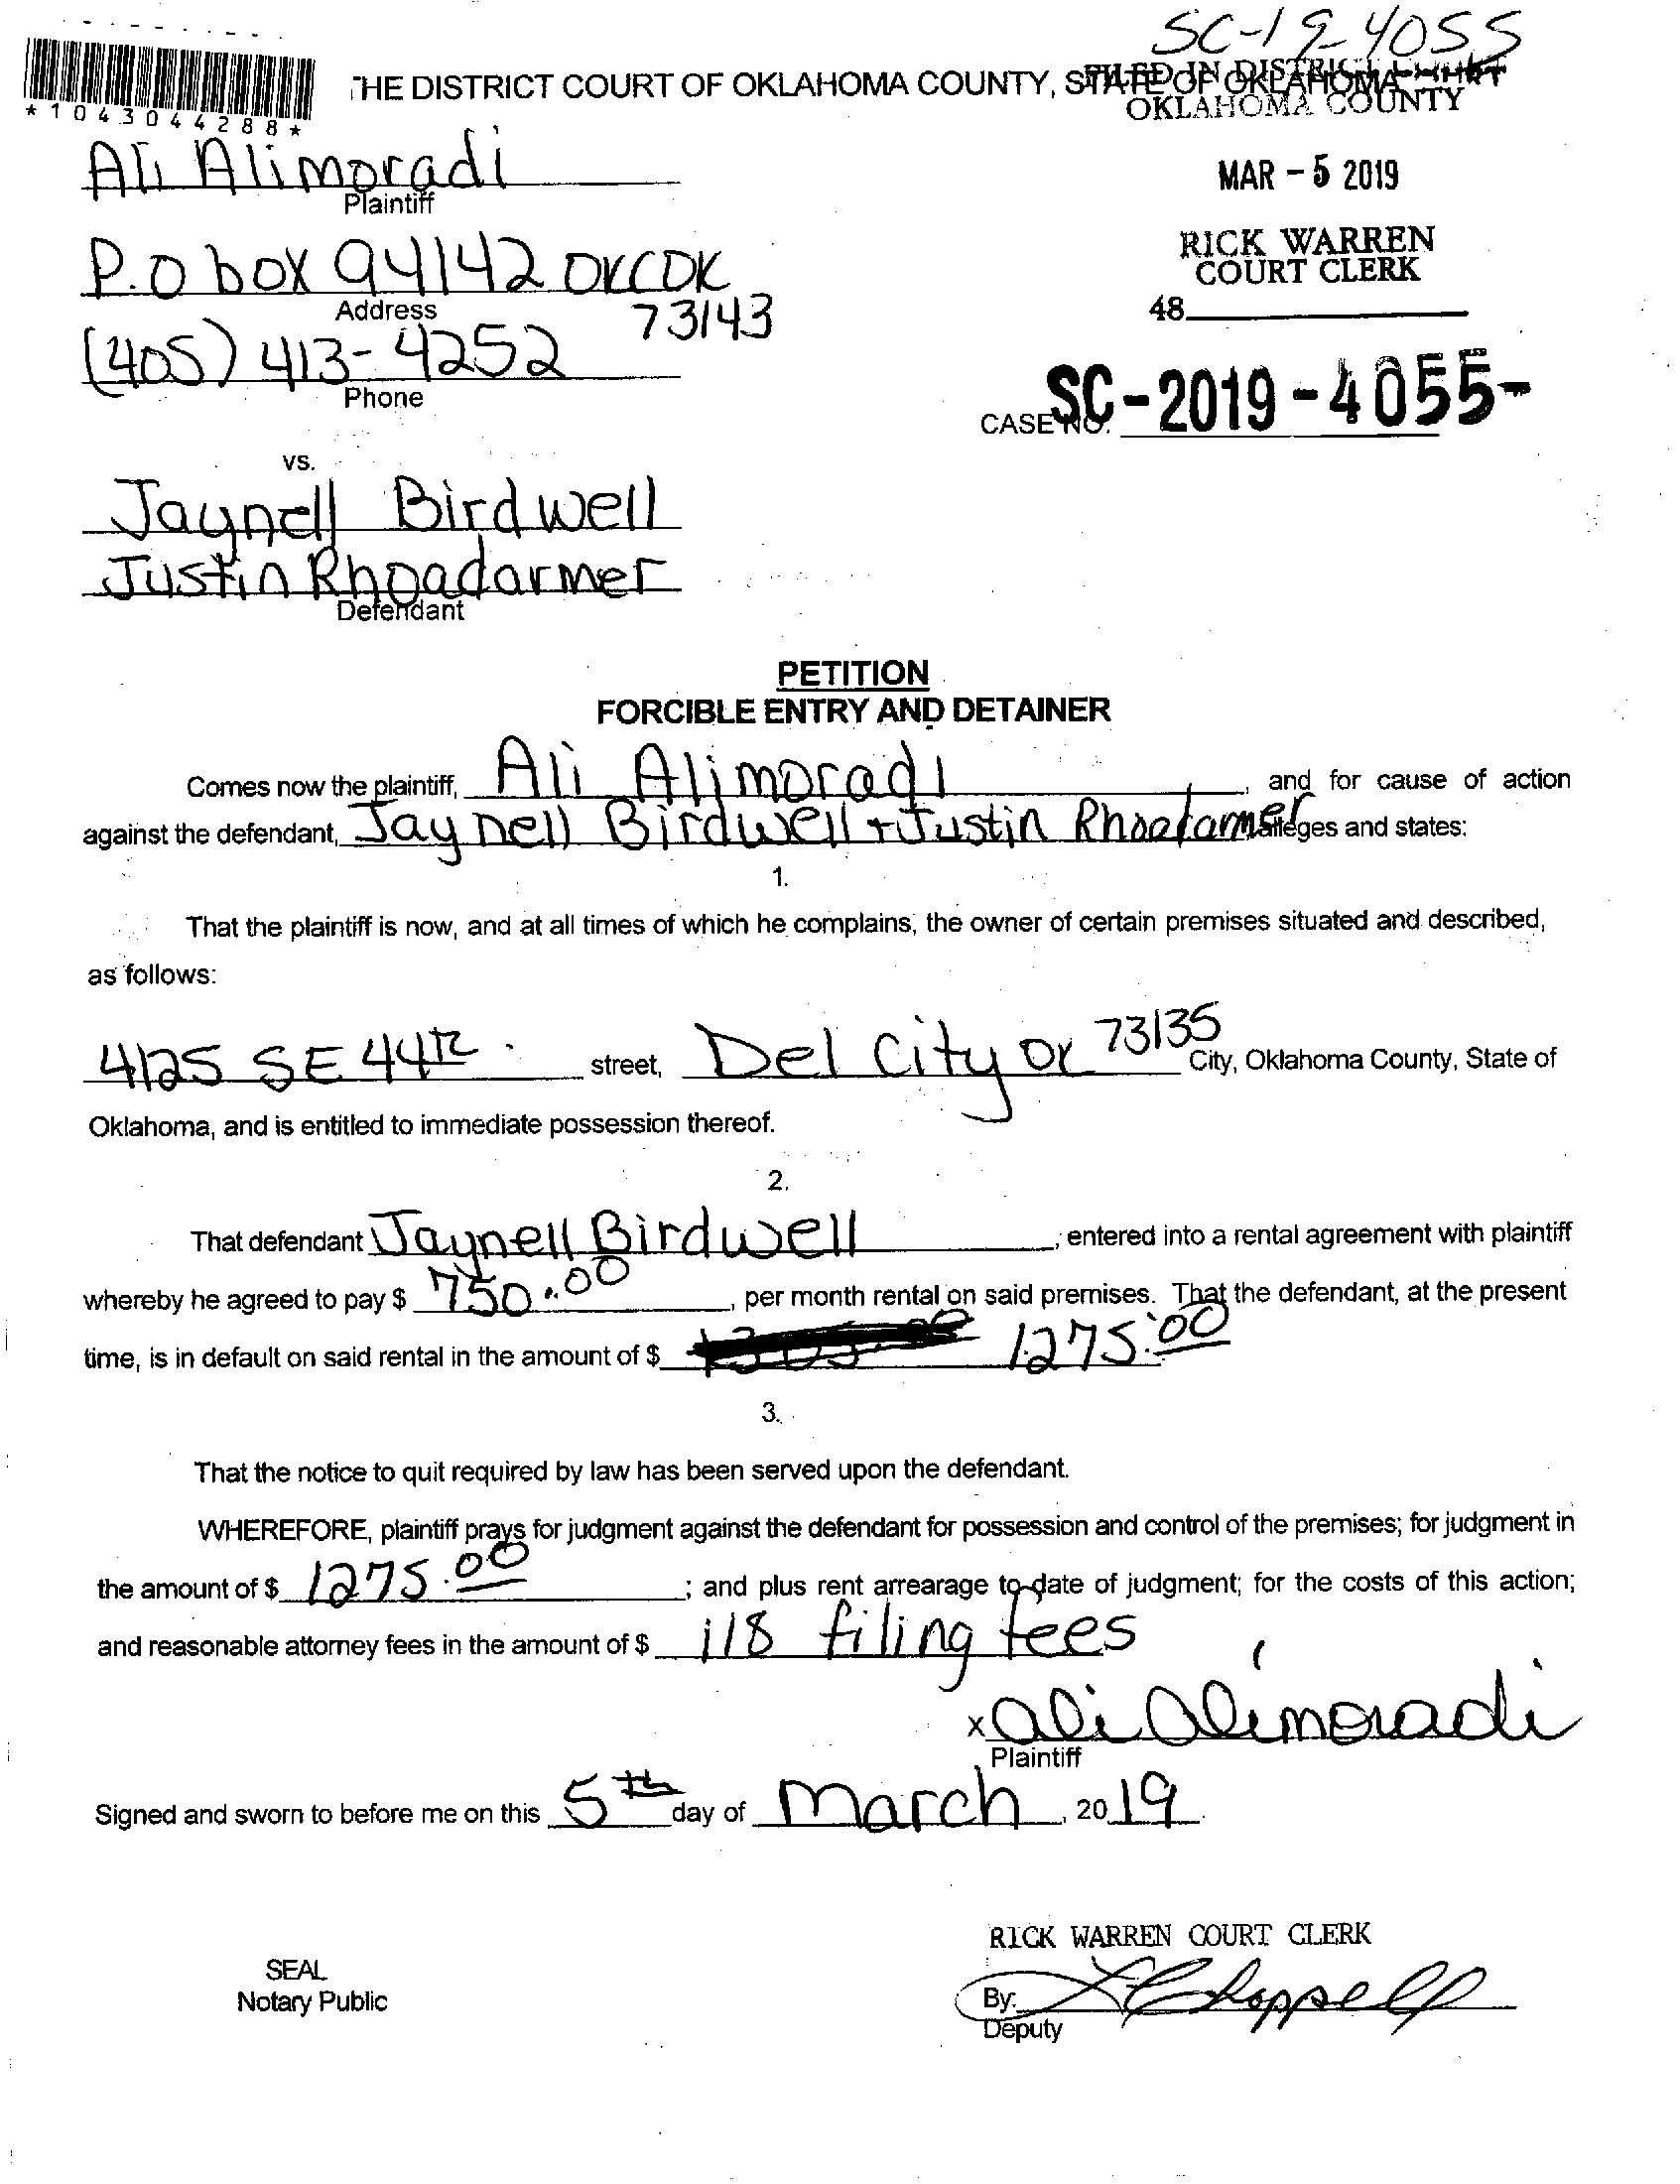 SC-19-4055
THE DISTRICT COURT OF OKLAHOMA COUNTY, STATE OF OKLAHOMA
FILED IN DISTRICT COURT
OKLAHOMA COUNTY
*1043044288*
Ali Alimoradi
Plaintiff
MAR - 5 2019
P.O box 94142 OKCOK
73143
Address
RICK WARREN
COURT CLERK
48
(405) 413-4252
Phone
CASE NO. SC-2019-4055-
vs.
Jaynell Birdwell
Justin Rhoadarmer
Defendant
PETITION
FORCIBLE ENTRY AND DETAINER
Comes now the plaintiff, Ali Alimoradi, and for cause of action
against the defendant, Jaynell Birdwell + Justin Rhoadarmer alleges and states:
1.
That the plaintiff is now, and at all times of which he complains, the owner of certain premises situated and described,
as follows:
4125 SE 44th street, Del City OK 73135 City, Oklahoma County, State of
Oklahoma, and is entitled to immediate possession thereof.
2.
That defendant Jaynell Birdwell, entered into a rental agreement with plaintiff
whereby he agreed to pay $ 750.00, per month rental on said premises. That the defendant, at the present
time, is in default on said rental in the amount of $ 1275.00
3.
That the notice to quit required by law has been served upon the defendant.
WHEREFORE, plaintiff prays for judgment against the defendant for possession and control of the premises; for judgment in
the amount of $ 1275.00; and plus rent arrearage to date of judgment; for the costs of this action;
and reasonable attorney fees in the amount of $ 118 filing fees
x Ali Alimoradi
Plaintiff
Signed and sworn to before me on this 5th day of March, 2019
RICK WARREN COURT CLERK
SEAL
Notary Public
By: Chappell
Deputy